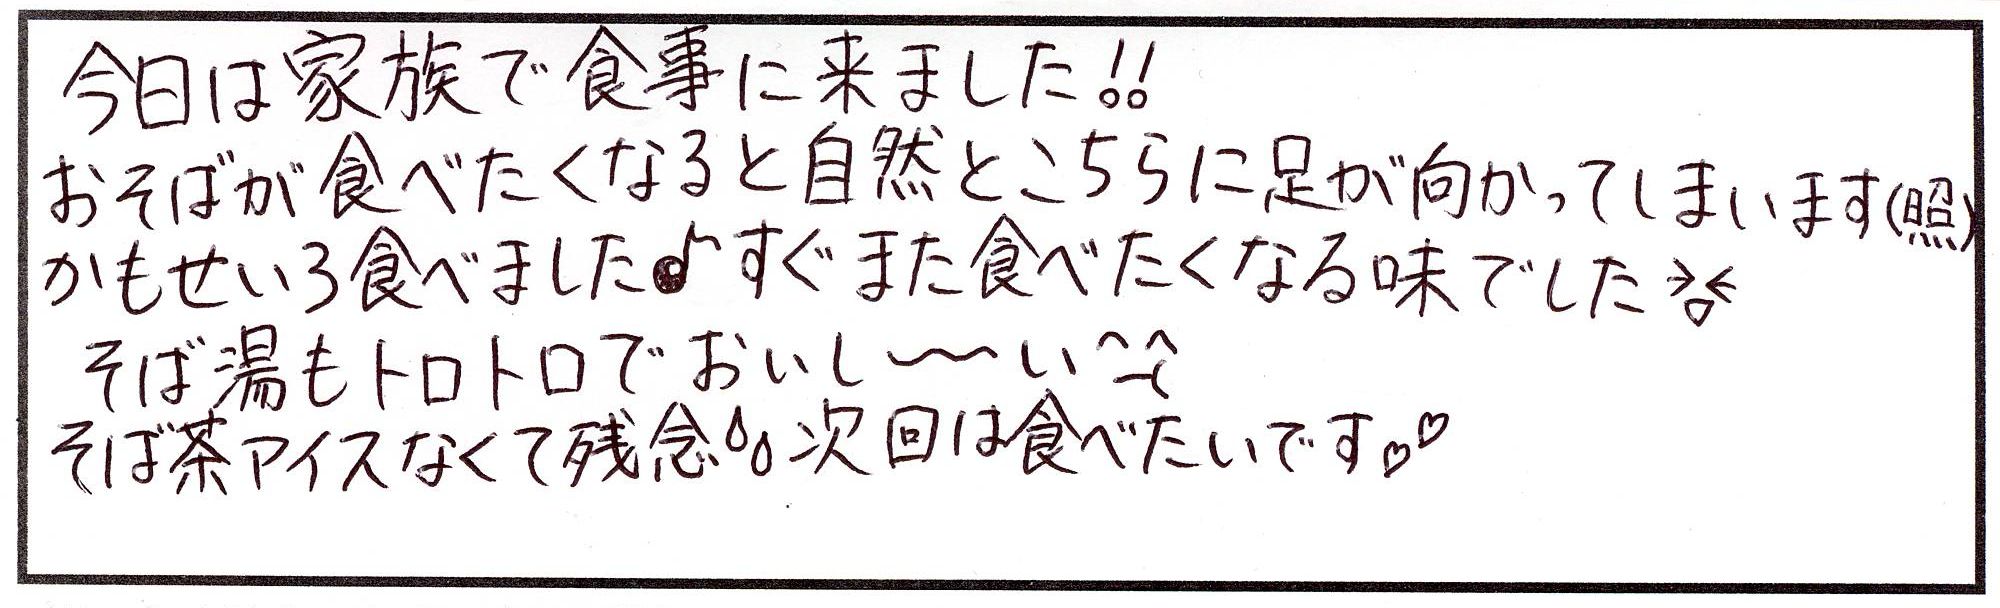 今日は家族で食事に来ました!!
おそばが食べたくなると自然とこちらに足が向かってしまいます(照)
かもせいろ食べました♪すぐまた食べたくなる味でした
そば湯もトロトロでおいし〜〜い^^
そば茶アイスなくて残念 次回は食べたいです♡♡